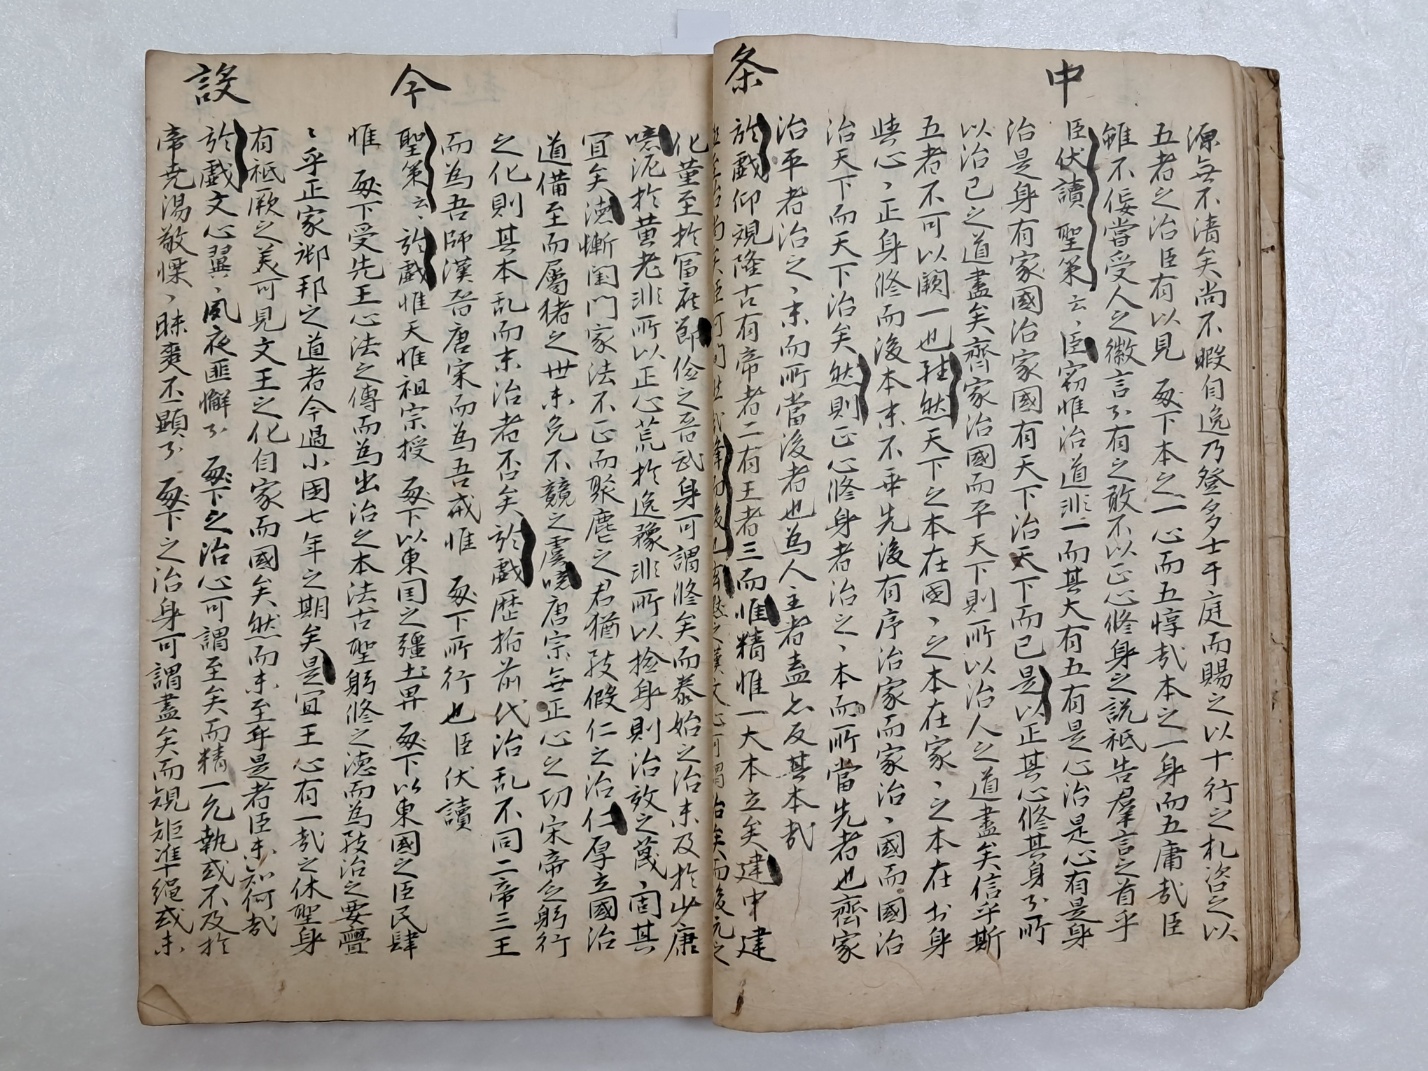 中
条
源無不清矣尚不暇自逸乃登多士于庭而賜之以十行之札咨之以
五者之治臣有以見 殿下本之一心而五惇哉本之一身而五庸哉臣
雖不佞嘗受人之徽言亦有之敢不以正心修身之說祗告羣言之首乎
臣伏讀聖策云〻臣窃惟治道非一而其大有五有是心治是心有是身
治是身有家國治家國有天下治天下而已是以正其心修其身亦所
以治己之道盡矣齊家治國而平天下則所以治人之道盡矣信乎斯
五者不可以闕一也雖然天下之本在國〻之本在家〻之本在於身
與心〻正身修而後本末不乖先後有序治家而家治〻國而國治
治天下而天下治矣然則正心修身者治之〻本而所當先者也齊家
治平者治之〻末而所當後者也為人主者盍亦反其本哉
於戲仰覌隆古有帝者二有王者三而惟精惟一大本立矣建中建
化董至於富庶節儉之吾武身可謂修矣而泰始之治未及於少康
噫泥於黄老非所以正心荒於逸豫非所以檢身則治效之蔑〻固其
宜矣德慚閨門家法不正而聚麀之君猶效假仁之治仁厚立國治
道備至而屬猪之世未免不競之虞噫唐宗無正心之功宋帝乏躬行
之化則其本乱而末治者否矣於戲歷指前代治乱不同二帝三王
而為吾師漢晉唐宋而為吾戒惟 殿下所行也臣伏讀
今
聖策云〻於戲惟天惟祖宗授 殿下以東国之疆土畀 殿下以東國之臣民肆
惟 殿下受先王心法之傳而為出治之本法古聖躬修之德而為致治之要亹
〻乎正家邦之道者今過小国七年之期矣是宜王心有一哉之休聖身
有祗厥之美可見文王之化自家而國矣然而未至乎是者臣未知何哉
談
於戲文心翼〻夙夜匪懈亦 殿下之治心可謂至矣而精一允執或不及於
帝堯湯敬慄〻昧爽不顯亦 殿下之治身可謂盡矣而規矩準繩或未